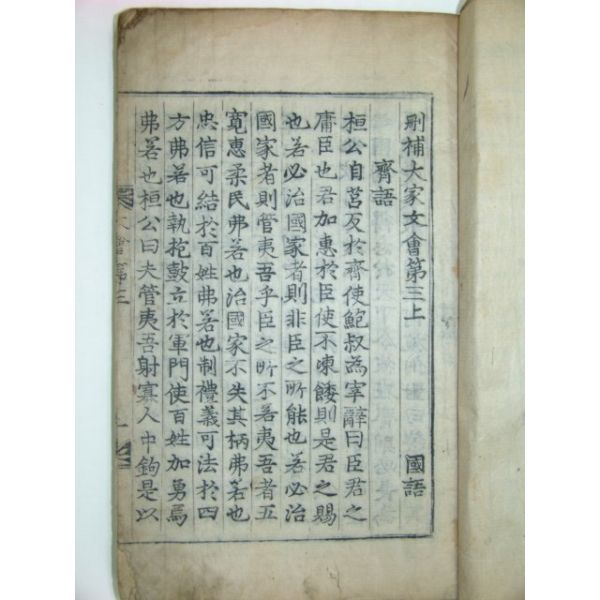 刪補大家文會第三上 國語
齊語
桓公自莒反於齊使鮑叔為宰辭曰臣君之
庸臣也君加惠於臣使不凍餒則是君之賜
也若必治國家者則非臣之所能也若必治
國家者則管夷吾乎臣之所不若夷吾者五
寬惠柔民弗若也治國家不失其柄弗若也
忠信可結於百姓弗若也制禮義可法於四
方弗若也執枹鼓立於軍門使百姓加勇焉
弗若也桓公曰夫管夷吾射寡人中鉤是以
文會第三